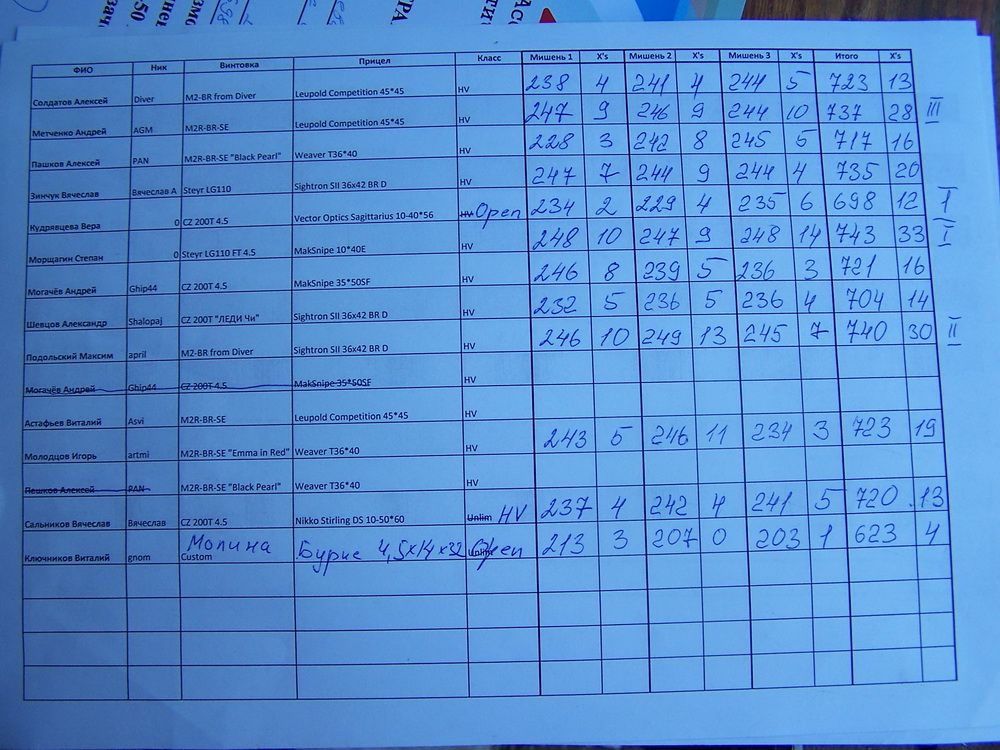 ФИО Ник Винтовка Прицел Класс Мишень 1 X's Мишень 2 X's Мишень 3 X's Итого X's
Солдатов Алексей Diver M2-BR from Diver Leupold Competition 45*45 HV 238 4 241 4 244 5 723 13
Метченко Андрей AGM M2R-BR-SE Leupold Competition 45*45 HV 247 9 246 9 244 10 737 28 III
Пашков Алексей PAN M2R-BR-SE "Black Pearl" Weaver T36*40 HV 228 3 242 8 245 5 717 16
Зинчук Вячеслав Вячеслав А Steyr LG110 Sightron SII 36x42 BR D HV 247 7 244 9 244 4 735 20
Кудрявцева Вера 0 CZ 200T 4.5 Vector Optics Sagittarius 10-40*56 HV Open 234 2 229 4 235 6 698 12 I
Морщагин Степан 0 Steyr LG110 FT 4.5 MakSnipe 10*40E HV 248 10 247 9 248 14 743 33 I
Могачёв Андрей Ghip44 CZ 200T 4.5 MakSnipe 35*50SF HV 246 8 239 5 236 3 721 16
Шевцов Александр Shalopaj CZ 200T "ЛЕДИ Чи" Sightron SII 36x42 BR D HV 232 5 236 5 236 4 704 14
Подольский Максим april M2-BR from Diver Sightron SII 36x42 BR D HV 246 10 249 13 245 7 740 30 II
Могачёв Андрей Ghip44 CZ 200T 4.5 MakSnipe 35*50SF HV
Астафьев Виталий Asvi M2R-BR-SE Leupold Competition 45*45 HV
Молодцов Игорь artmi M2R-BR-SE "Emma in Red" Weaver T36*40 HV 243 5 246 11 234 3 723 19
Пашков Алексей PAN M2R-BR-SE "Black Pearl" Weaver T36*40 HV
Сальников Вячеслав Вячеслав CZ 200T 4.5 Nikko Stirling DS 10-50*60 Unlim HV 237 4 242 4 241 5 720 13
Ключников Виталий gnom Молина Custom Бурис 4,5x14x32 Open 213 3 207 0 203 1 623 4